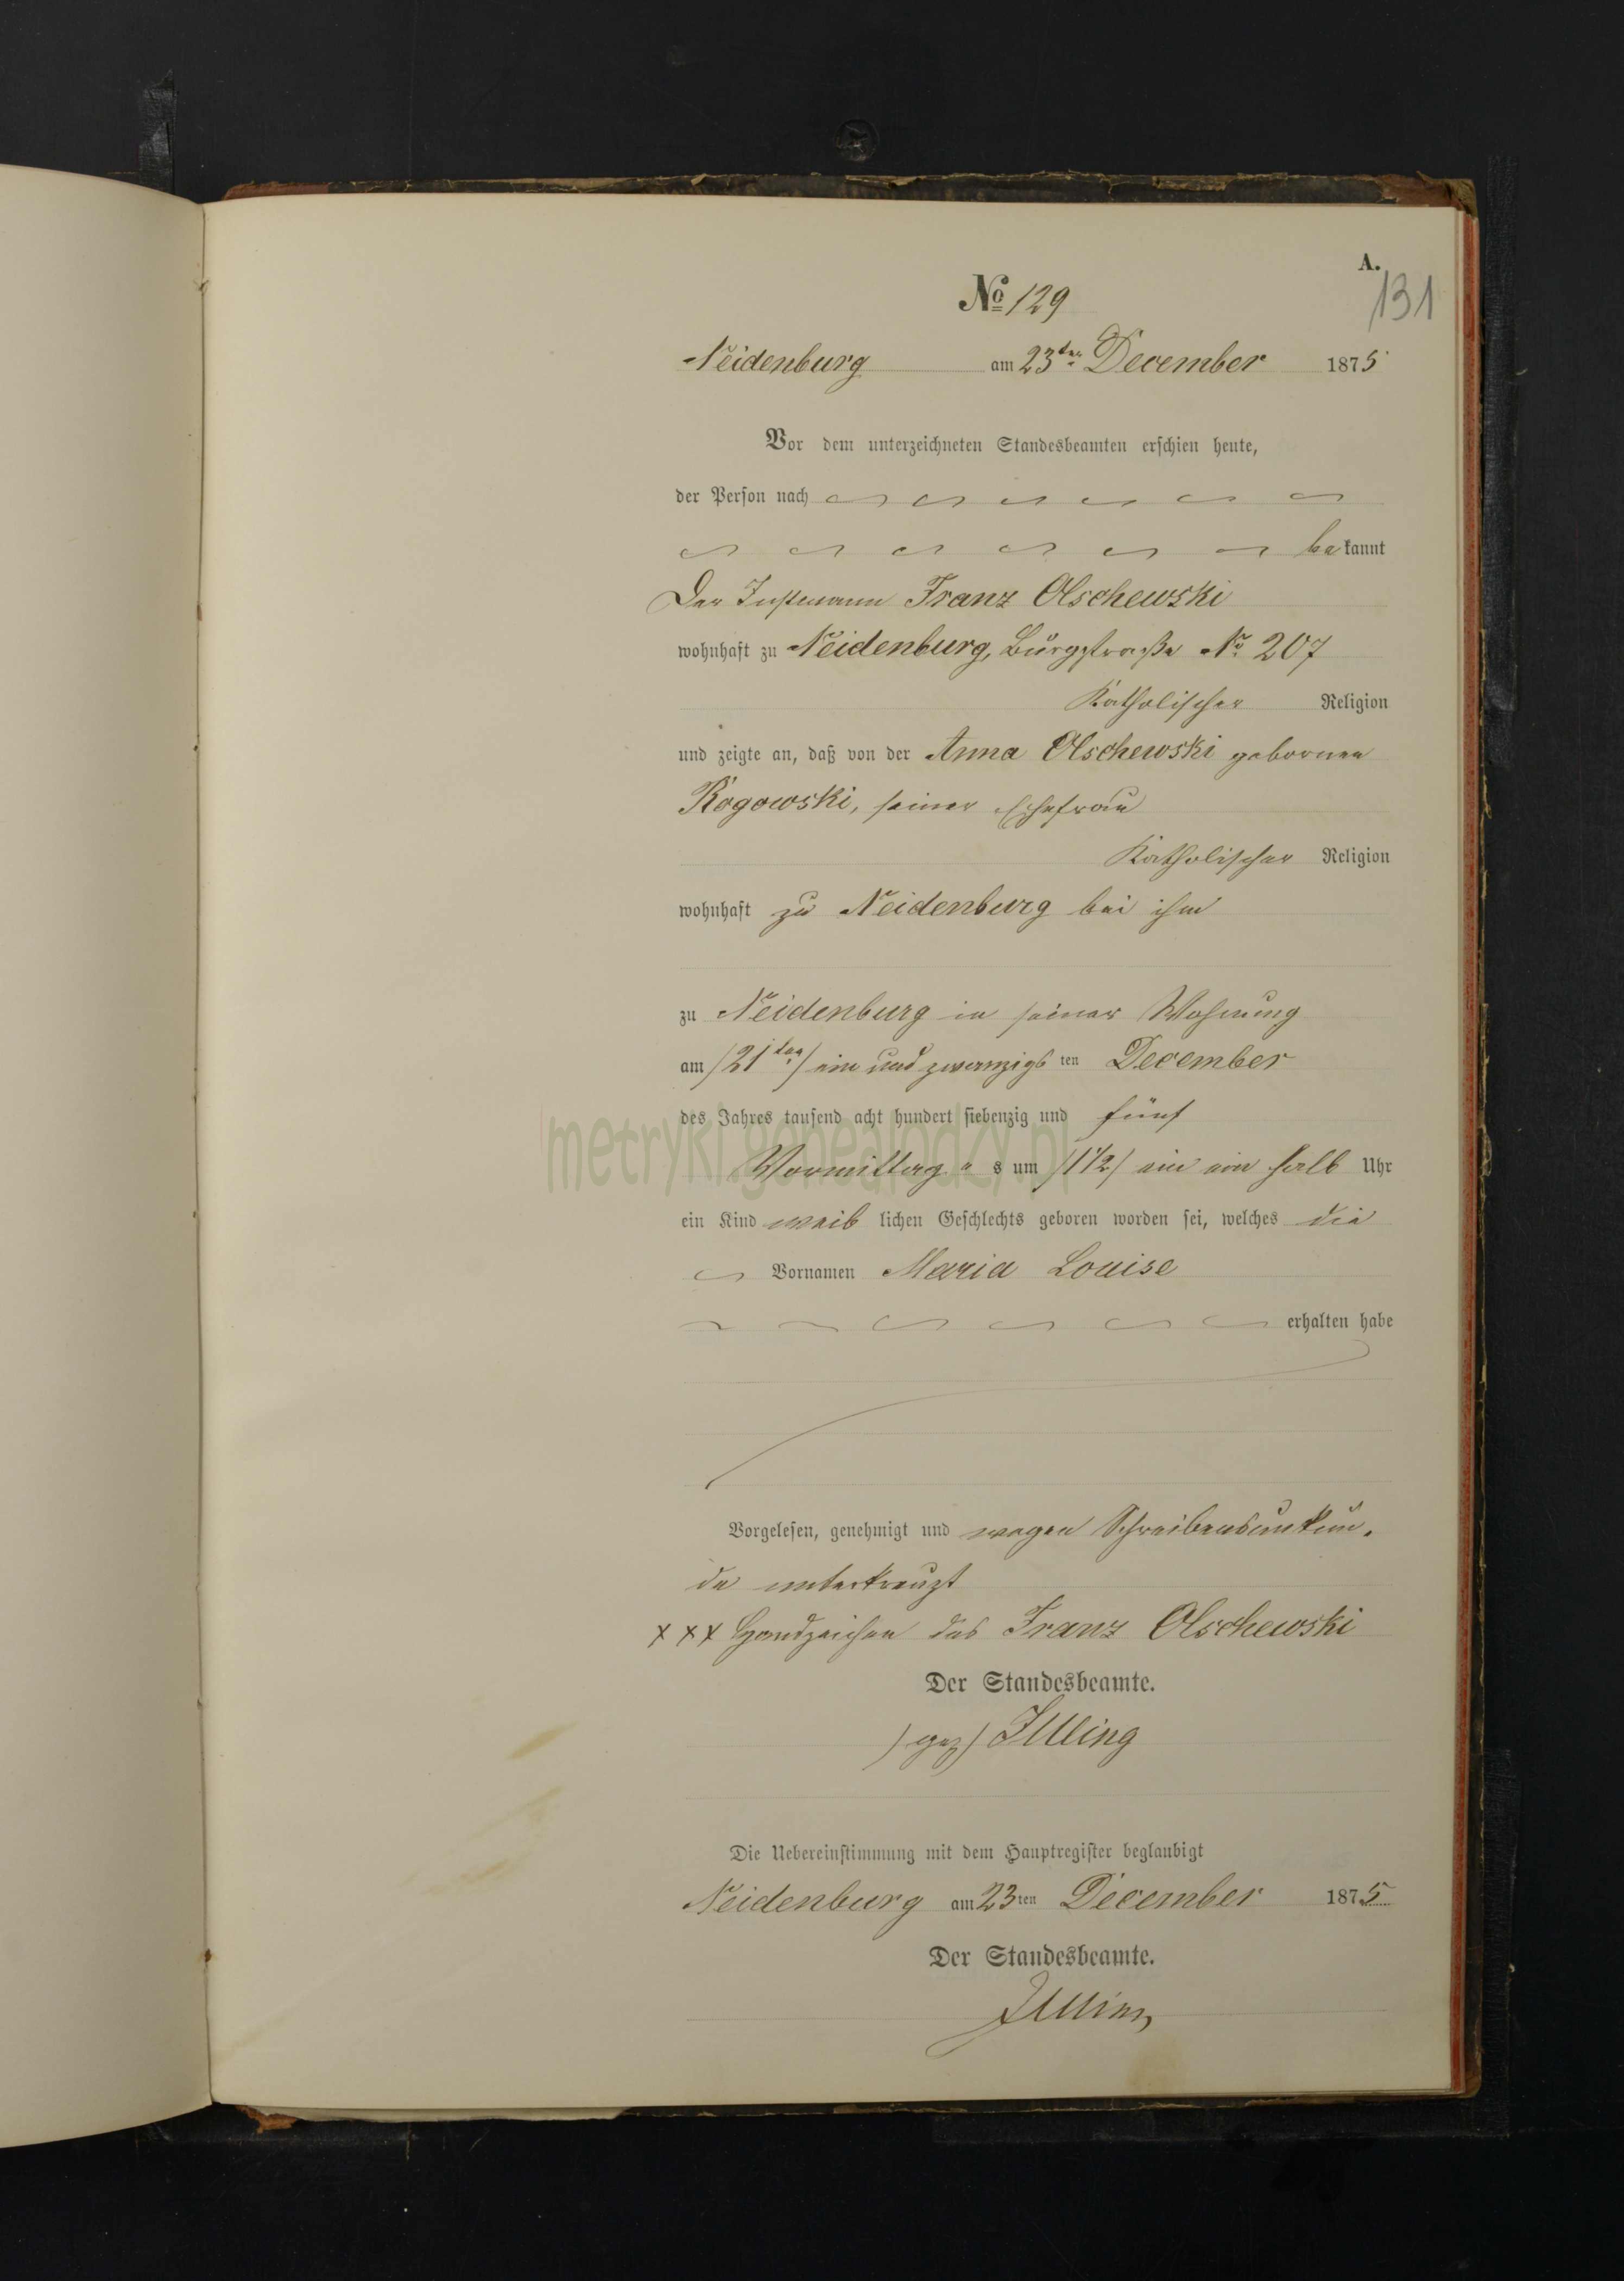 A.
131
No 129
Neidenburg am 23ten December 1875
Vor dem unterzeichneten Standesbeamten erschien heute,
der Person nach
bekannt
Der Instmann Franz Olschewski
wohnhaft zu Neidenburg, Burgstraße No 207
Katholischer Religion
und zeigte an, daß von der Anna Olschewski gebornen
Rogowski, seiner Ehefrau
Katholischer Religion
wohnhaft zu Neidenburg bei ihm
zu Neidenburg in seiner Wohnung
am /21ten/ ein und zwanzigsten December
des Jahres tausend acht hundert siebenzig und fünf
metryki.genealodzy.pl
Vormittags um /1 1/2/ ein ein halb Uhr
ein Kind weiblichen Geschlechts geboren worden sei, welches die
Vornamen Maria Louise
erhalten habe
Vorgelesen, genehmigt und wegen Schreibensunkun-
de unterkreuzt
xxx Handzeichen des Franz Olschewski
Der Standesbeamte.
/gez/ Illing
Die Uebereinstimmung mit dem Hauptregister beglaubigt
Neidenburg am 23ten December 1875
Der Standesbeamte.
Illing